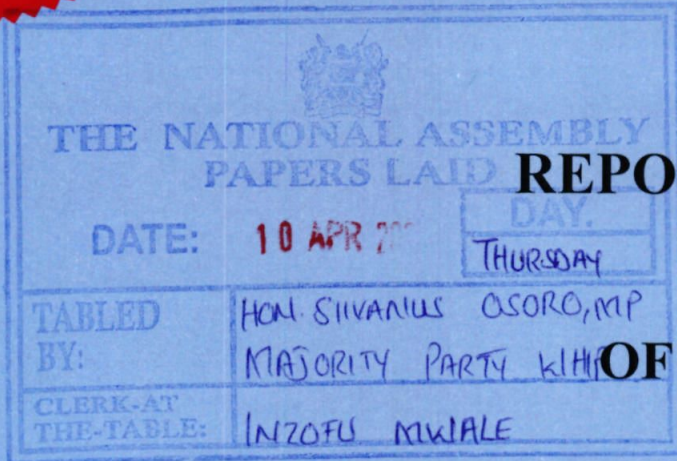 THE NATIONAL ASSEMBLY
PAPERS LAID
REPO
DATE: 10 APR
DAY.
THURSDAY
TABLED BY:
HON. SILVANUS OSORO, MP
MAJORITY PARTY WHIP
OF
CLERK-AT THE-TABLE:
INZOFU MWALE